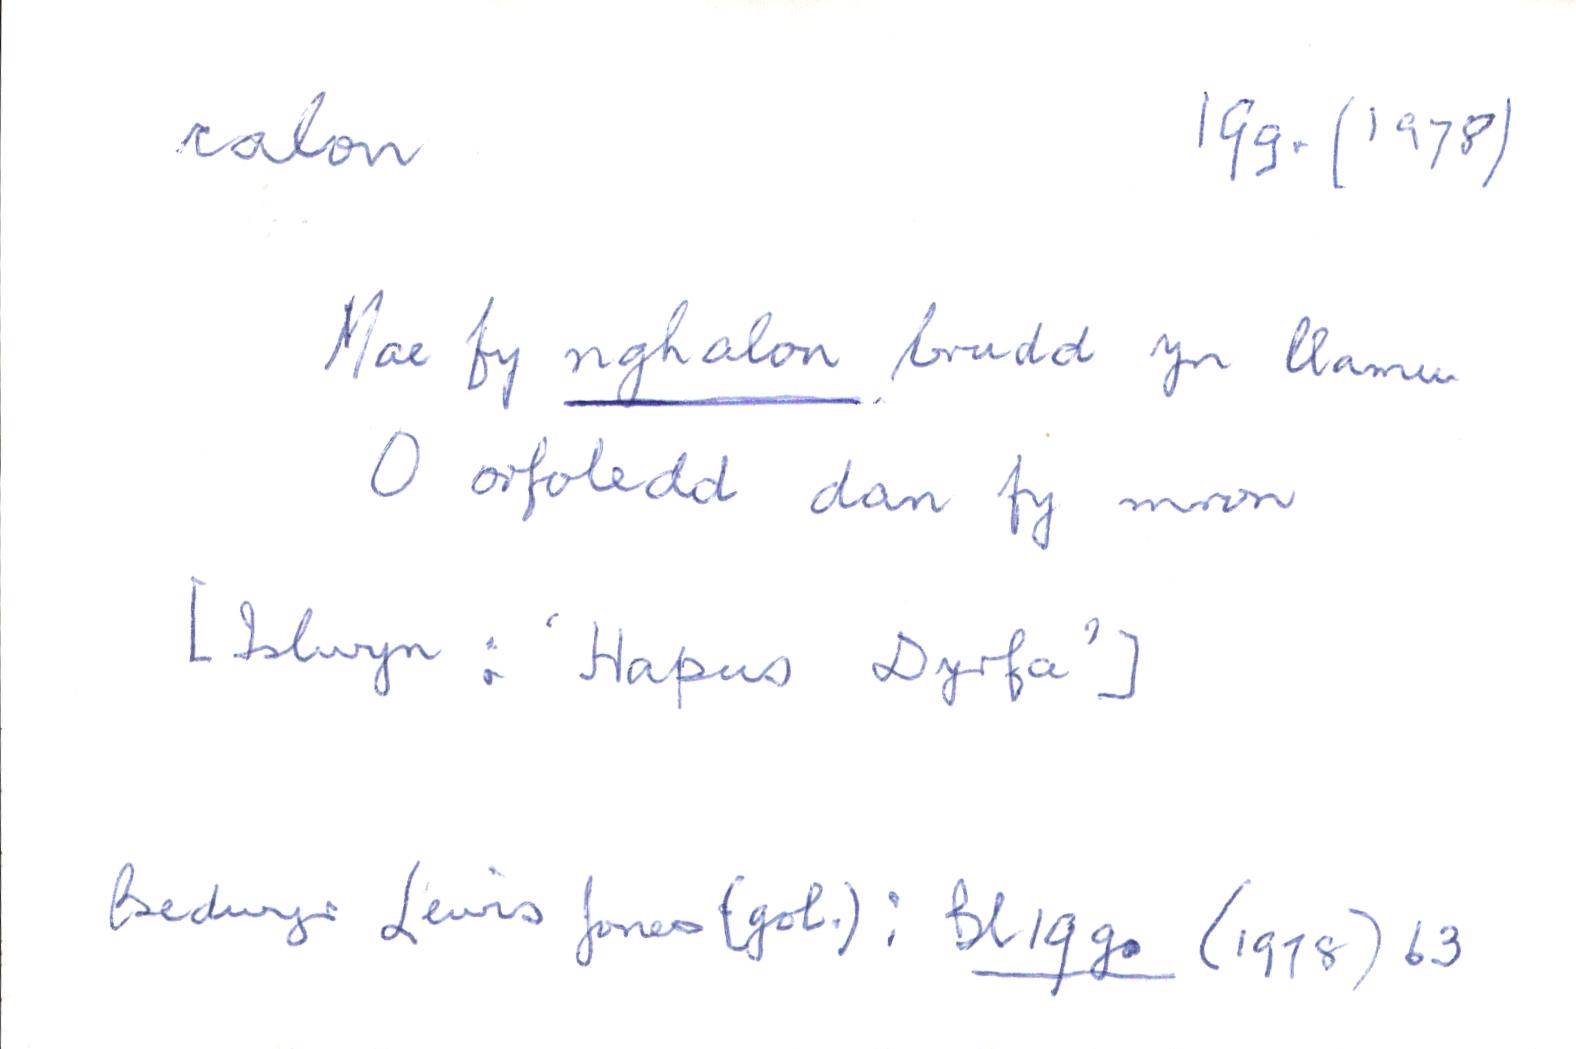 calon 19g. (1978)
Mae fy nghalon brudd yn llamu
O orfoledd dan fy mron
[Islwyn : 'Hapus Dyrfa']
Bedwyr Lewis Jones (gol.) : Bl19g. (1978) 63